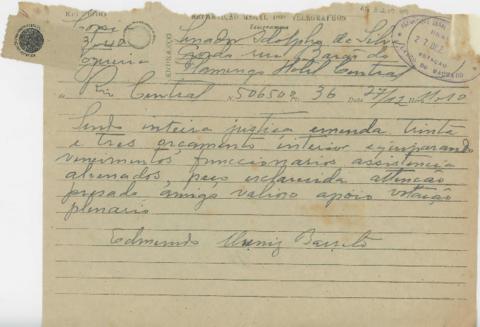 REPARTIÇÃO GERAL DOS TELEGRAPHOS
Telegramma
Senador Adolpho da Silva
Gordo rua Barão do
Flamengo Hotel Central
Rio Central N. 506502 36 Data 27/12 11010
Sendo inteira justiça emenda trinta
e tres orçamento interior equiparando
vencimentos funccionarios assistencia
alienados, peço esclarecida attenção
presado amigo valioso apoio votação
plenario
Edmundo Muniz Barreto